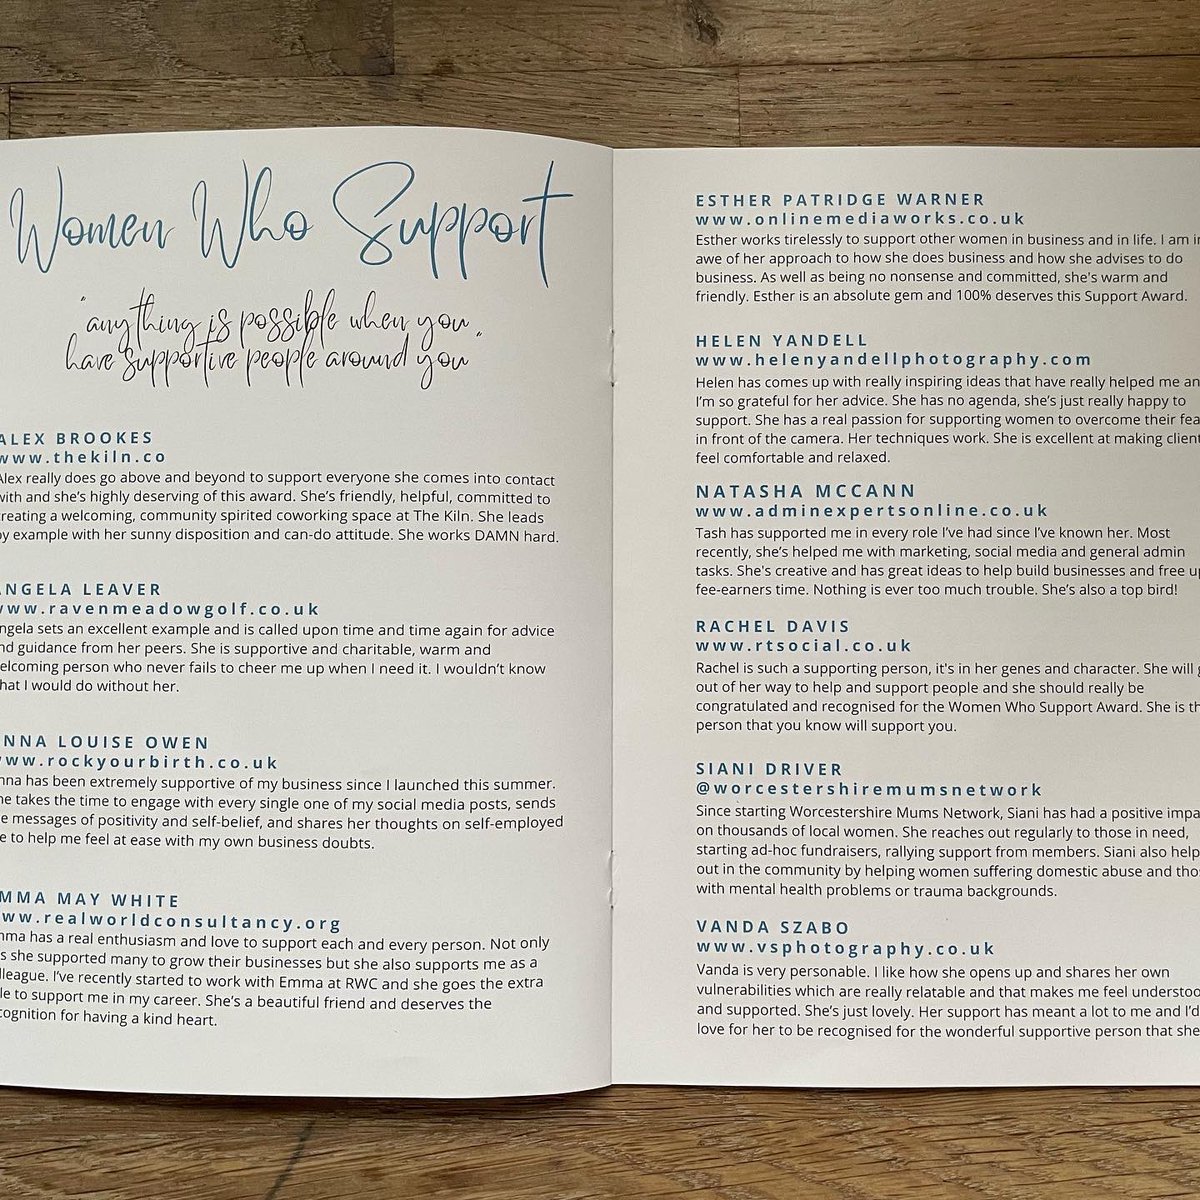 Women Who Support
"anything is possible when you
have supportive people around you"
ALEX BROOKES
www.thekiln.co
Alex really does go above and beyond to support everyone she comes into contact
with and she's highly deserving of this award. She's friendly, helpful, committed to
creating a welcoming, community spirited coworking space at The Kiln. She leads
by example with her sunny disposition and can-do attitude. She works DAMN hard.
ANGELA LEAVER
www.ravenmeadowgolf.co.uk
ngela sets an excellent example and is called upon time and time again for advice
nd guidance from her peers. She is supportive and charitable, warm and
elcoming person who never fails to cheer me up when I need it. I wouldn't know
hat I would do without her.
NNA LOUISE OWEN
www.rockyourbirth.co.uk
nna has been extremely supportive of my business since I launched this summer.
he takes the time to engage with every single one of my social media posts, sends
e messages of positivity and self-belief, and shares her thoughts on self-employed
e to help me feel at ease with my own business doubts.
MMA MAY WHITE
ww.realworldconsultancy.org
mma has a real enthusiasm and love to support each and every person. Not only
s she supported many to grow their businesses but she also supports me as a
lleague. I've recently started to work with Emma at RWC and she goes the extra
le to support me in my career. She's a beautiful friend and deserves the
cognition for having a kind heart.
ESTHER PATRIDGE WARNER
www.onlinemediaworks.co.uk
Esther works tirelessly to support other women in business and in life. I am in
awe of her approach to how she does business and how she advises to do
business. As well as being no nonsense and committed, she's warm and
friendly. Esther is an absolute gem and 100% deserves this Support Award.
HELEN YANDELL
www.helenyandellphotography.com
Helen has comes up with really inspiring ideas that have really helped me an
I'm so grateful for her advice. She has no agenda, she's just really happy to
support. She has a real passion for supporting women to overcome their fea
in front of the camera. Her techniques work. She is excellent at making client
feel comfortable and relaxed.
NATASHA MCCANN
www.adminexpertsonline.co.uk
Tash has supported me in every role I've had since I've known her. Most
recently, she's helped me with marketing, social media and general admin
tasks. She's creative and has great ideas to help build businesses and free up
fee-earners time. Nothing is ever too much trouble. She's also a top bird!
RACHEL DAVIS
www.rtsocial.co.uk
Rachel is such a supporting person, it's in her genes and character. She will g
out of her way to help and support people and she should really be
congratulated and recognised for the Women Who Support Award. She is th
person that you know will support you.
SIANI DRIVER
@worcestershiremumsnetwork
Since starting Worcestershire Mums Network, Siani has had a positive impa
on thousands of local women. She reaches out regularly to those in need,
starting ad-hoc fundraisers, rallying support from members. Siani also help
out in the community by helping women suffering domestic abuse and tho
with mental health problems or trauma backgrounds.
VANDA SZABO
www.vsphotography.co.uk
Vanda is very personable. I like how she opens up and shares her own
vulnerabilities which are really relatable and that makes me feel understoo
and supported. She's just lovely. Her support has meant a lot to me and I'd
love for her to be recognised for the wonderful supportive person that she